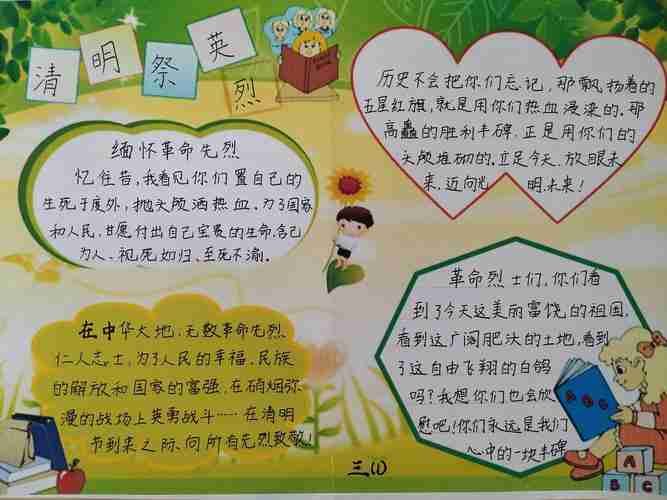 清明祭英烈
缅怀革命先烈
忆往昔,我看见你们置自己的
生死于度外,抛头颅洒热血、为了国家
和人民,甘愿付出自己宝贵的生命,舍己
为人、视死如归、至死不渝。
历史不会把你们忘记,那飘扬着的
五星红旗,就是用你们热血浸染的。那
高矗的胜利丰碑,正是用你们的
头颅堆砌的。立足今天,放眼未
来,迈向光明未来!
在中华大地,无数革命先烈
仁人志士,为了人民的幸福、民族
的解放和国家的富强,在硝烟弥
漫的战场上英勇战斗……在清明
节到来之际、向所有先烈致敬!
革命烈士们,你们看
到了今天这美丽富饶的祖国,
看到这广阔肥沃的土地,看到
了这自由飞翔的白鸽
吗?我想你们也会欣
慰吧!你们永远是我们
心中的一块丰碑
三(1)
ABC
A
B
C